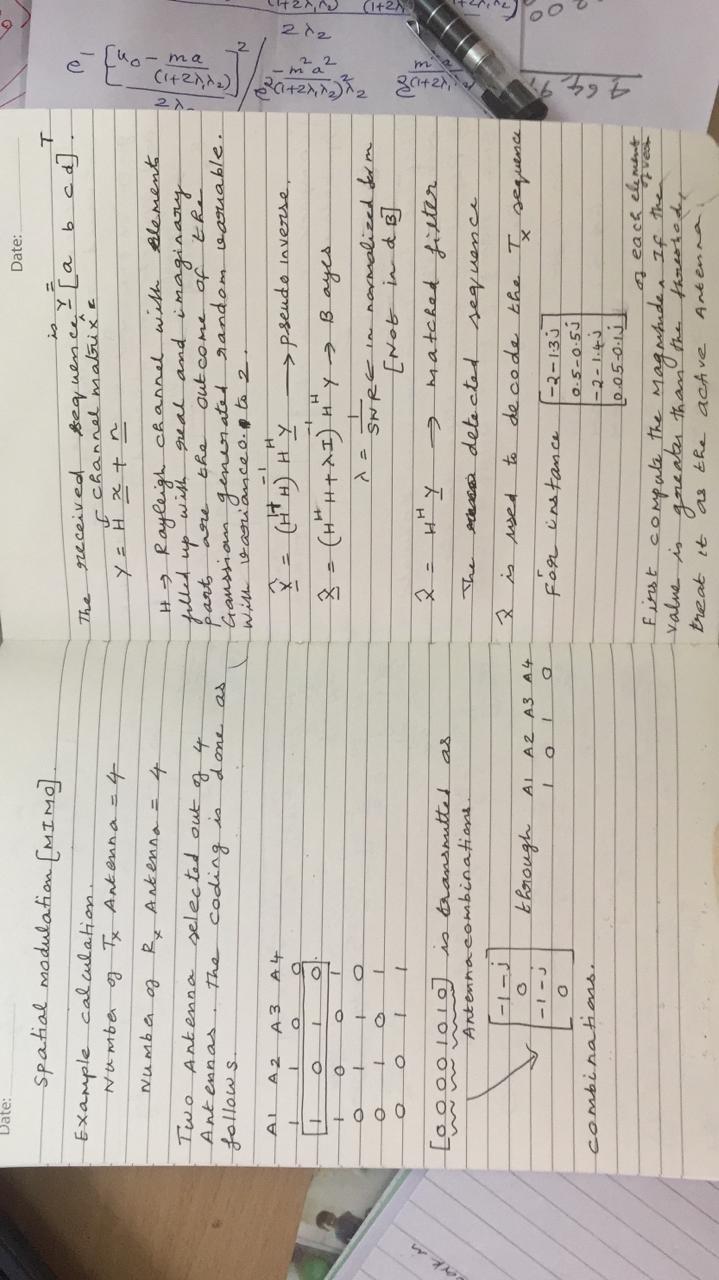 Date:
Spatial modulation [MIMO].
Example calculation.
Number of Tx Antenna = 4
Number of Rx Antenna = 4
Two Antenna selected out of 4
Antennas. The coding is done as
follows.
A1 A2 A3 A4
1 1 0 0
1 0 1 0
1 0 0 1
0 1 1 0
0 1 0 1
0 0 1 1
[0 0 0 0 1 0 1 0] is transmitted as
Antenna combinations.
[-1-j
0
-1-j
0]
through A1 A2 A3 A4
1 0 1 0
combinations.
Date:
The received sequence is Y = [a b c d]^T.
channel matrix
Y = H x + n
H → Rayleigh channel with element
filled up with real and imaginary
parts are the outcome of the
Gaussian generated random variable.
with variance 0. to 2.
X̂ = (H^H H)^-1 H^H Y → pseudo inverse.
X̂ = (H^H H + λI)^-1 H^H Y → Bayes
λ = 1/SNR ← in normalized form
[Not in dB]
X̂ = H^H Y → matched filter
The detected sequence
X̂ is used to decode the Tx sequence
For instance
[-2-1.3j
0.5-0.5j
-2-1.4j
0.05-0.1j]
First compute the Magnitude of each element of vector. If the
value is greater than the threshod,
treat it as the active Antenna.